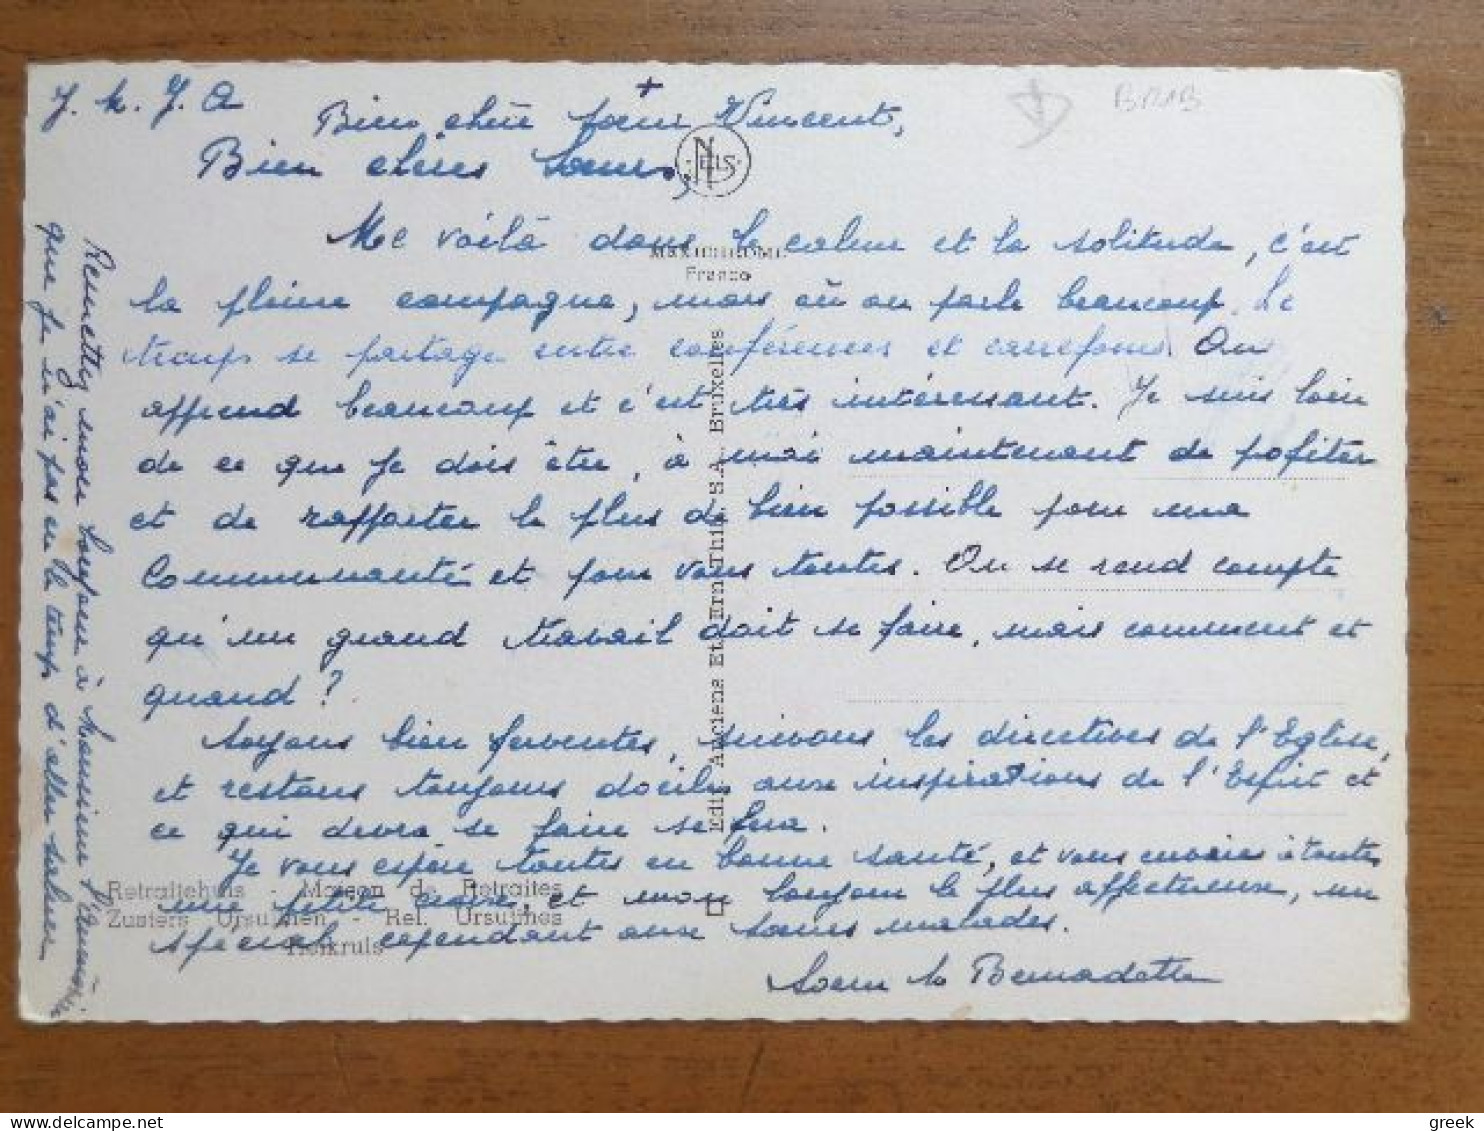 J. M. J. A
+
Bien chère soeur Vincent,
Bien chères Soeurs,
NELS
BRAB
Me voilà dans le calme et la solitude, c'est
la pleine campagne, mais où on parle beaucoup. Le
temps se partage entre conférences et carrefours. On
apprend beaucoup et c'est très intéressant. Je suis loin
de ce que je dois être, à moi maintenant de profiter
et de rapporter le plus de bien possible pour ma
Communauté et pour vous toutes. On se rend compte
qu'un grand travail doit se faire, mais comment et
quand?
Soyons bien ferventes, suivons les directives de l'Eglise,
et restons toujours dociles aux inspirations de l'Esprit et
ce qui devra se faire se fera.
Je vous espère toutes en bonne santé, et vous envoie à toutes
une petite, et mon bonjour le plus affectueux, un
spécial cependant aux Soeurs malades.
Soeur M Bernadette
Remettez mon bonjour à Monsieur l'Aumônier
que je n'ai pas eu le temps d'aller saluer
France
Edit. Anciens Et. Ern. Thill, S.A., Bruxelles
Retraitehuis - Maison de Retraites
Zusters Ursulinen - Rel. Ursulines
Kerkruis
greek
delcampe.net